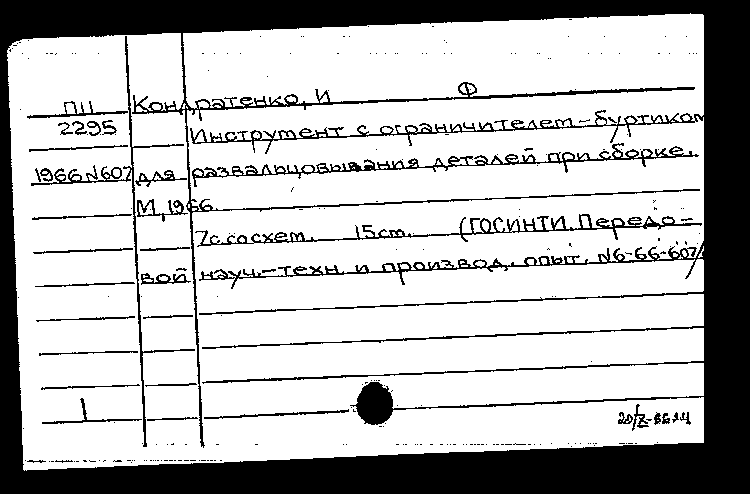 ПII Кондратенко, И Ф
2295 Инструмент с ограничителем-буртиком
1966 №607 для развальцовывания деталей при сборке.
М, 1966
7с. со схем. 15см. (ГОСИНТИ. Передо-
вой науч.-техн. и производ. опыт. №6-66-607/
1